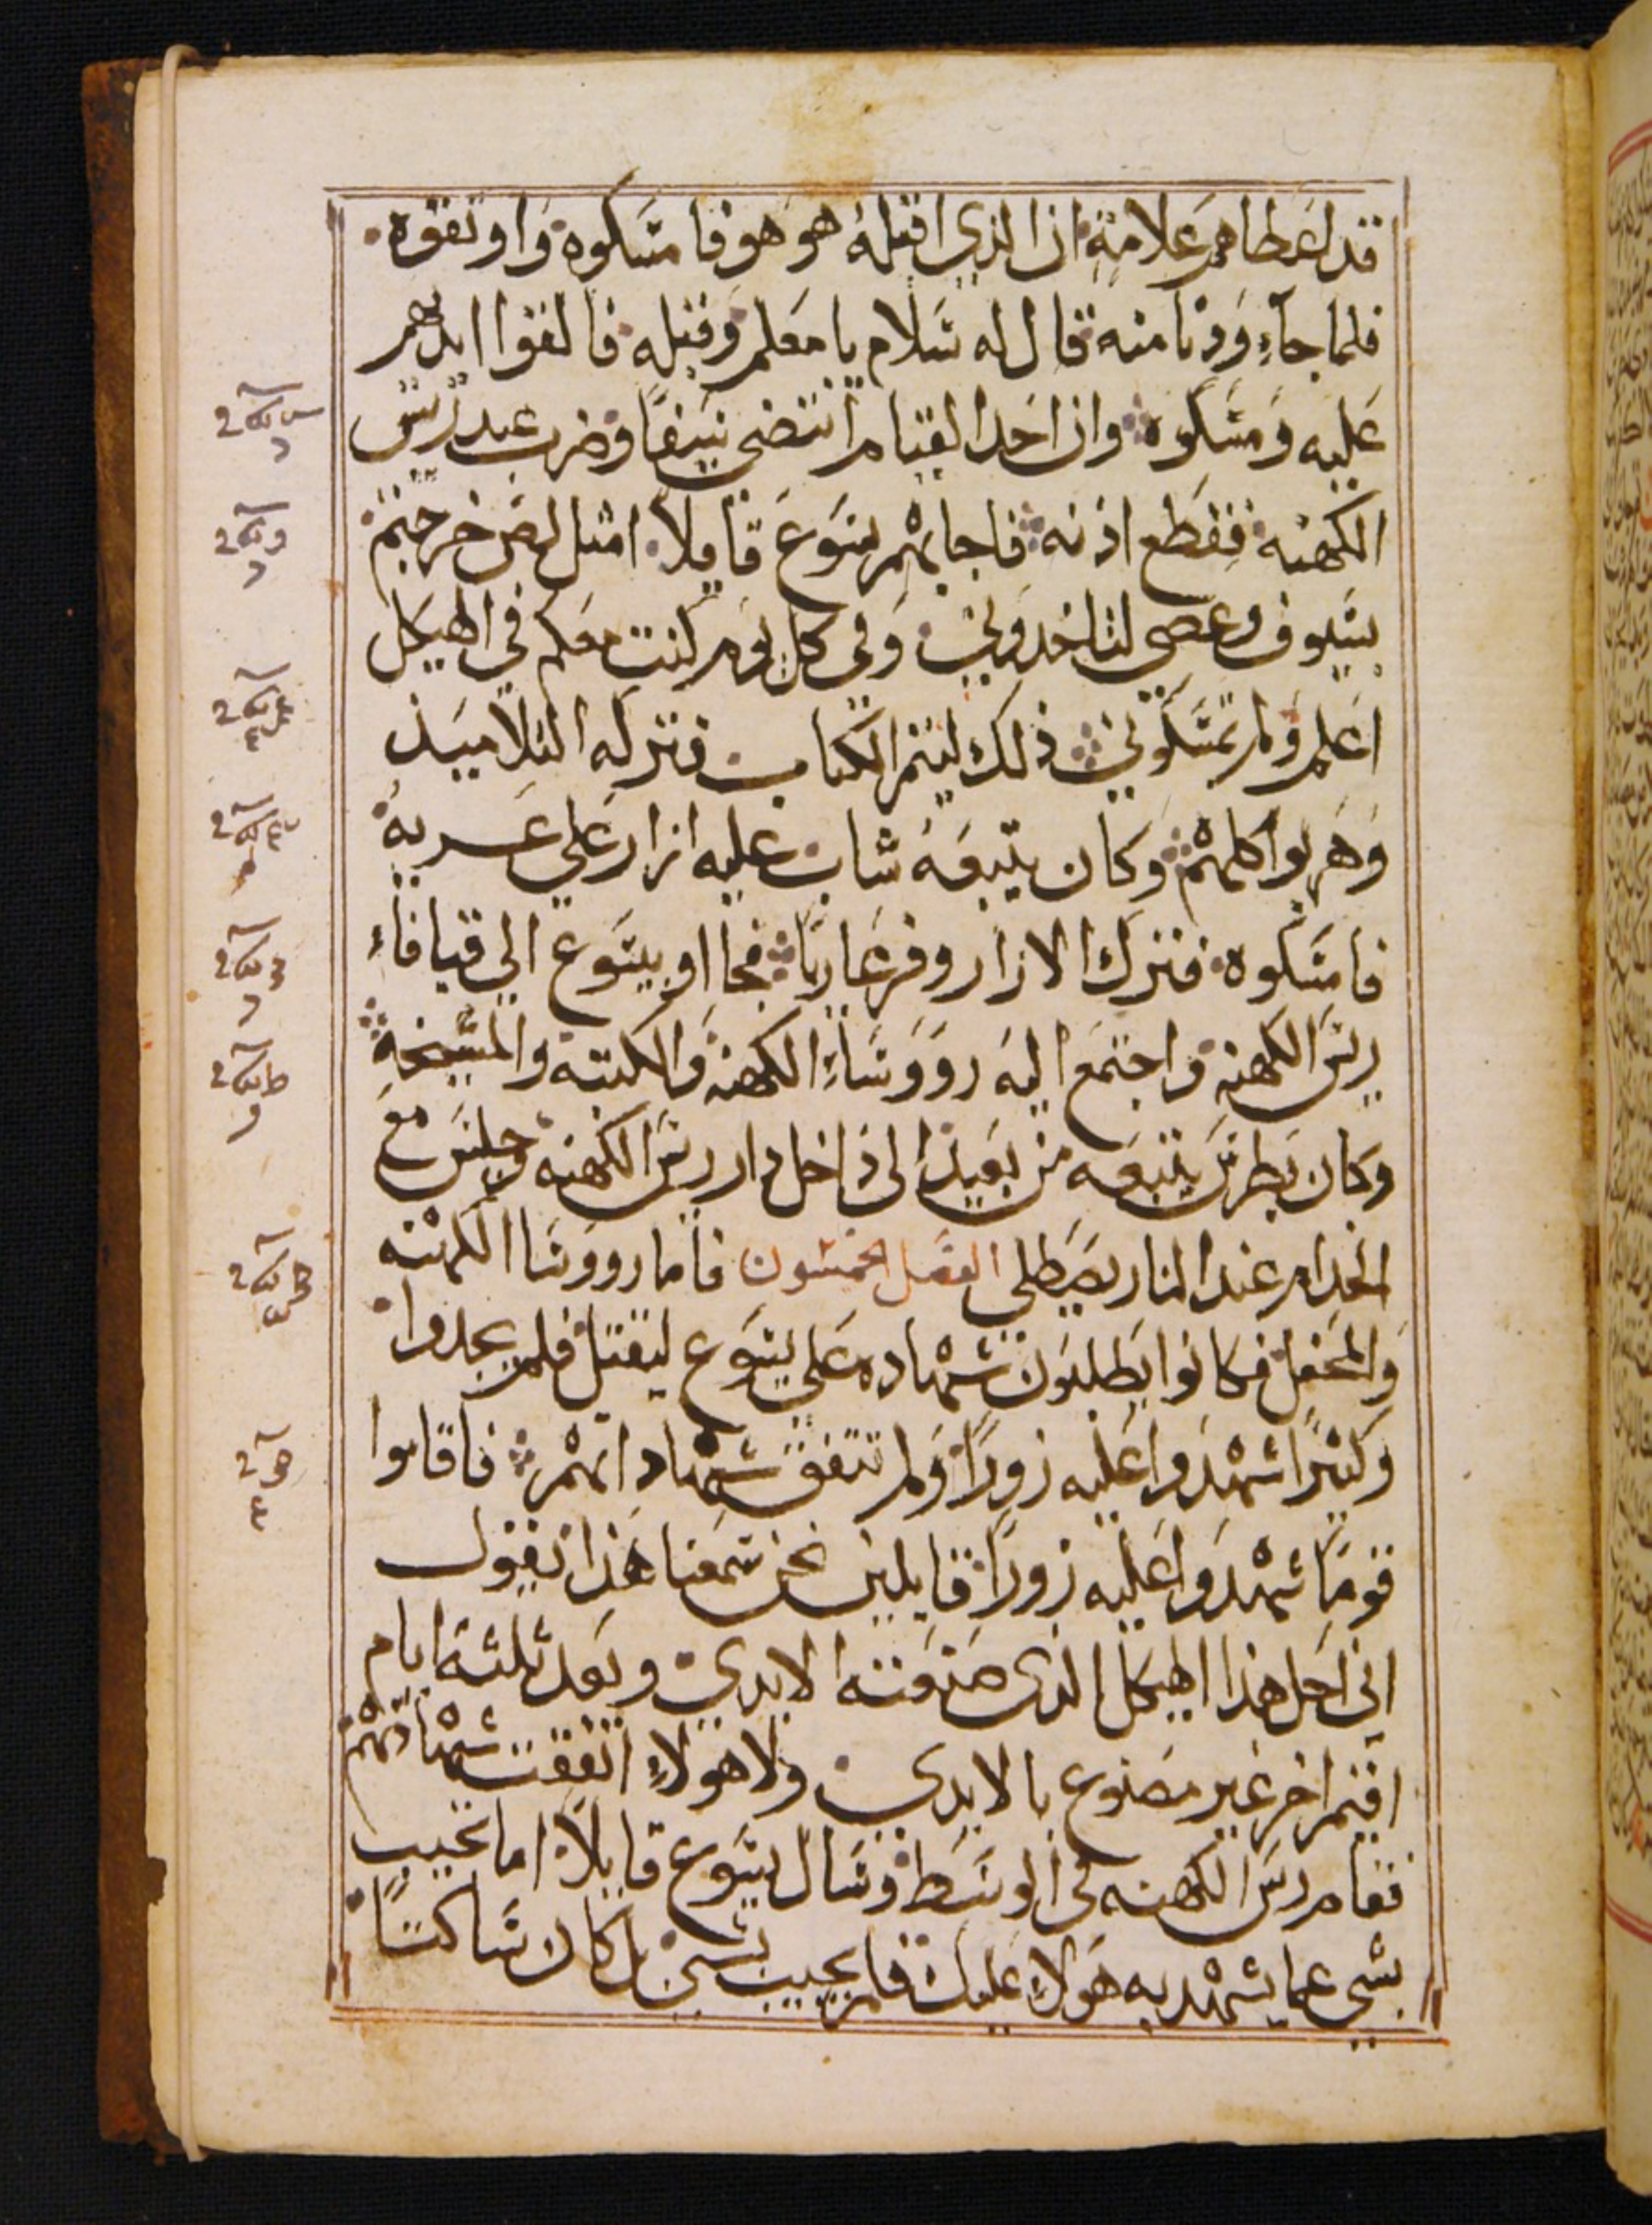 قد اعطاهم علامة ان الذي اقبله هو هو فامسكوه واوثقوه
فلما جاء ودنا منه قال له سلام يا معلم وقبله فالقوا ايديهم
عليه ومسكوه وان احد القيام انتضى سيفا وضرب عبد ريس
الكهنه فقطع اذنه فاجابهم يسوع قايلا امثل لص خرجتم
بسيوف وعصي لتاخدوني وفي كل يوم كنت معكم في الهيكل
اعلم ولم تمسكوني ذلك ليتم الكتاب فتركه التلاميذ
وهربوا كلهم وكان يتبعه شاب عليه ازار على عريه
فامسكوه فترك الازار وفر عاريا فجاا وبيسوع الى قيافاء
ريس الكهنه واجتمع اليه رووساء الكهنه والكتبه والمشيخة
وكان بطرس يتبعه من بعيد الى داخل دار ريس الكهنه وجلس مع
الخدام عند النار يصطلي الفصل الخمسون فاما رووسا الكهنه
والمحفل فكانوا يطلبون شهاده على يسوع ليقتل فلم يجدوا
وكثيرا شهدوا عليه زورا ولم تتفق شهاداتهم فاقاموا
قوما شهدوا عليه زورا قايلين نحن سمعنا هذا يقول
اني احل هذا الهيكل الذي صنعته الايدي وبعد ثلثة ايام
اقيم اخر غير مصنوع بالايدي ولا هولاء اتفقت شهادتهم
فقام ريس الكهنه في الوسط وسال يسوع قايلا اما تجيب
بشي عما يشهد به هولاء عليك فلم يجيب بشي بل كان ساكتا